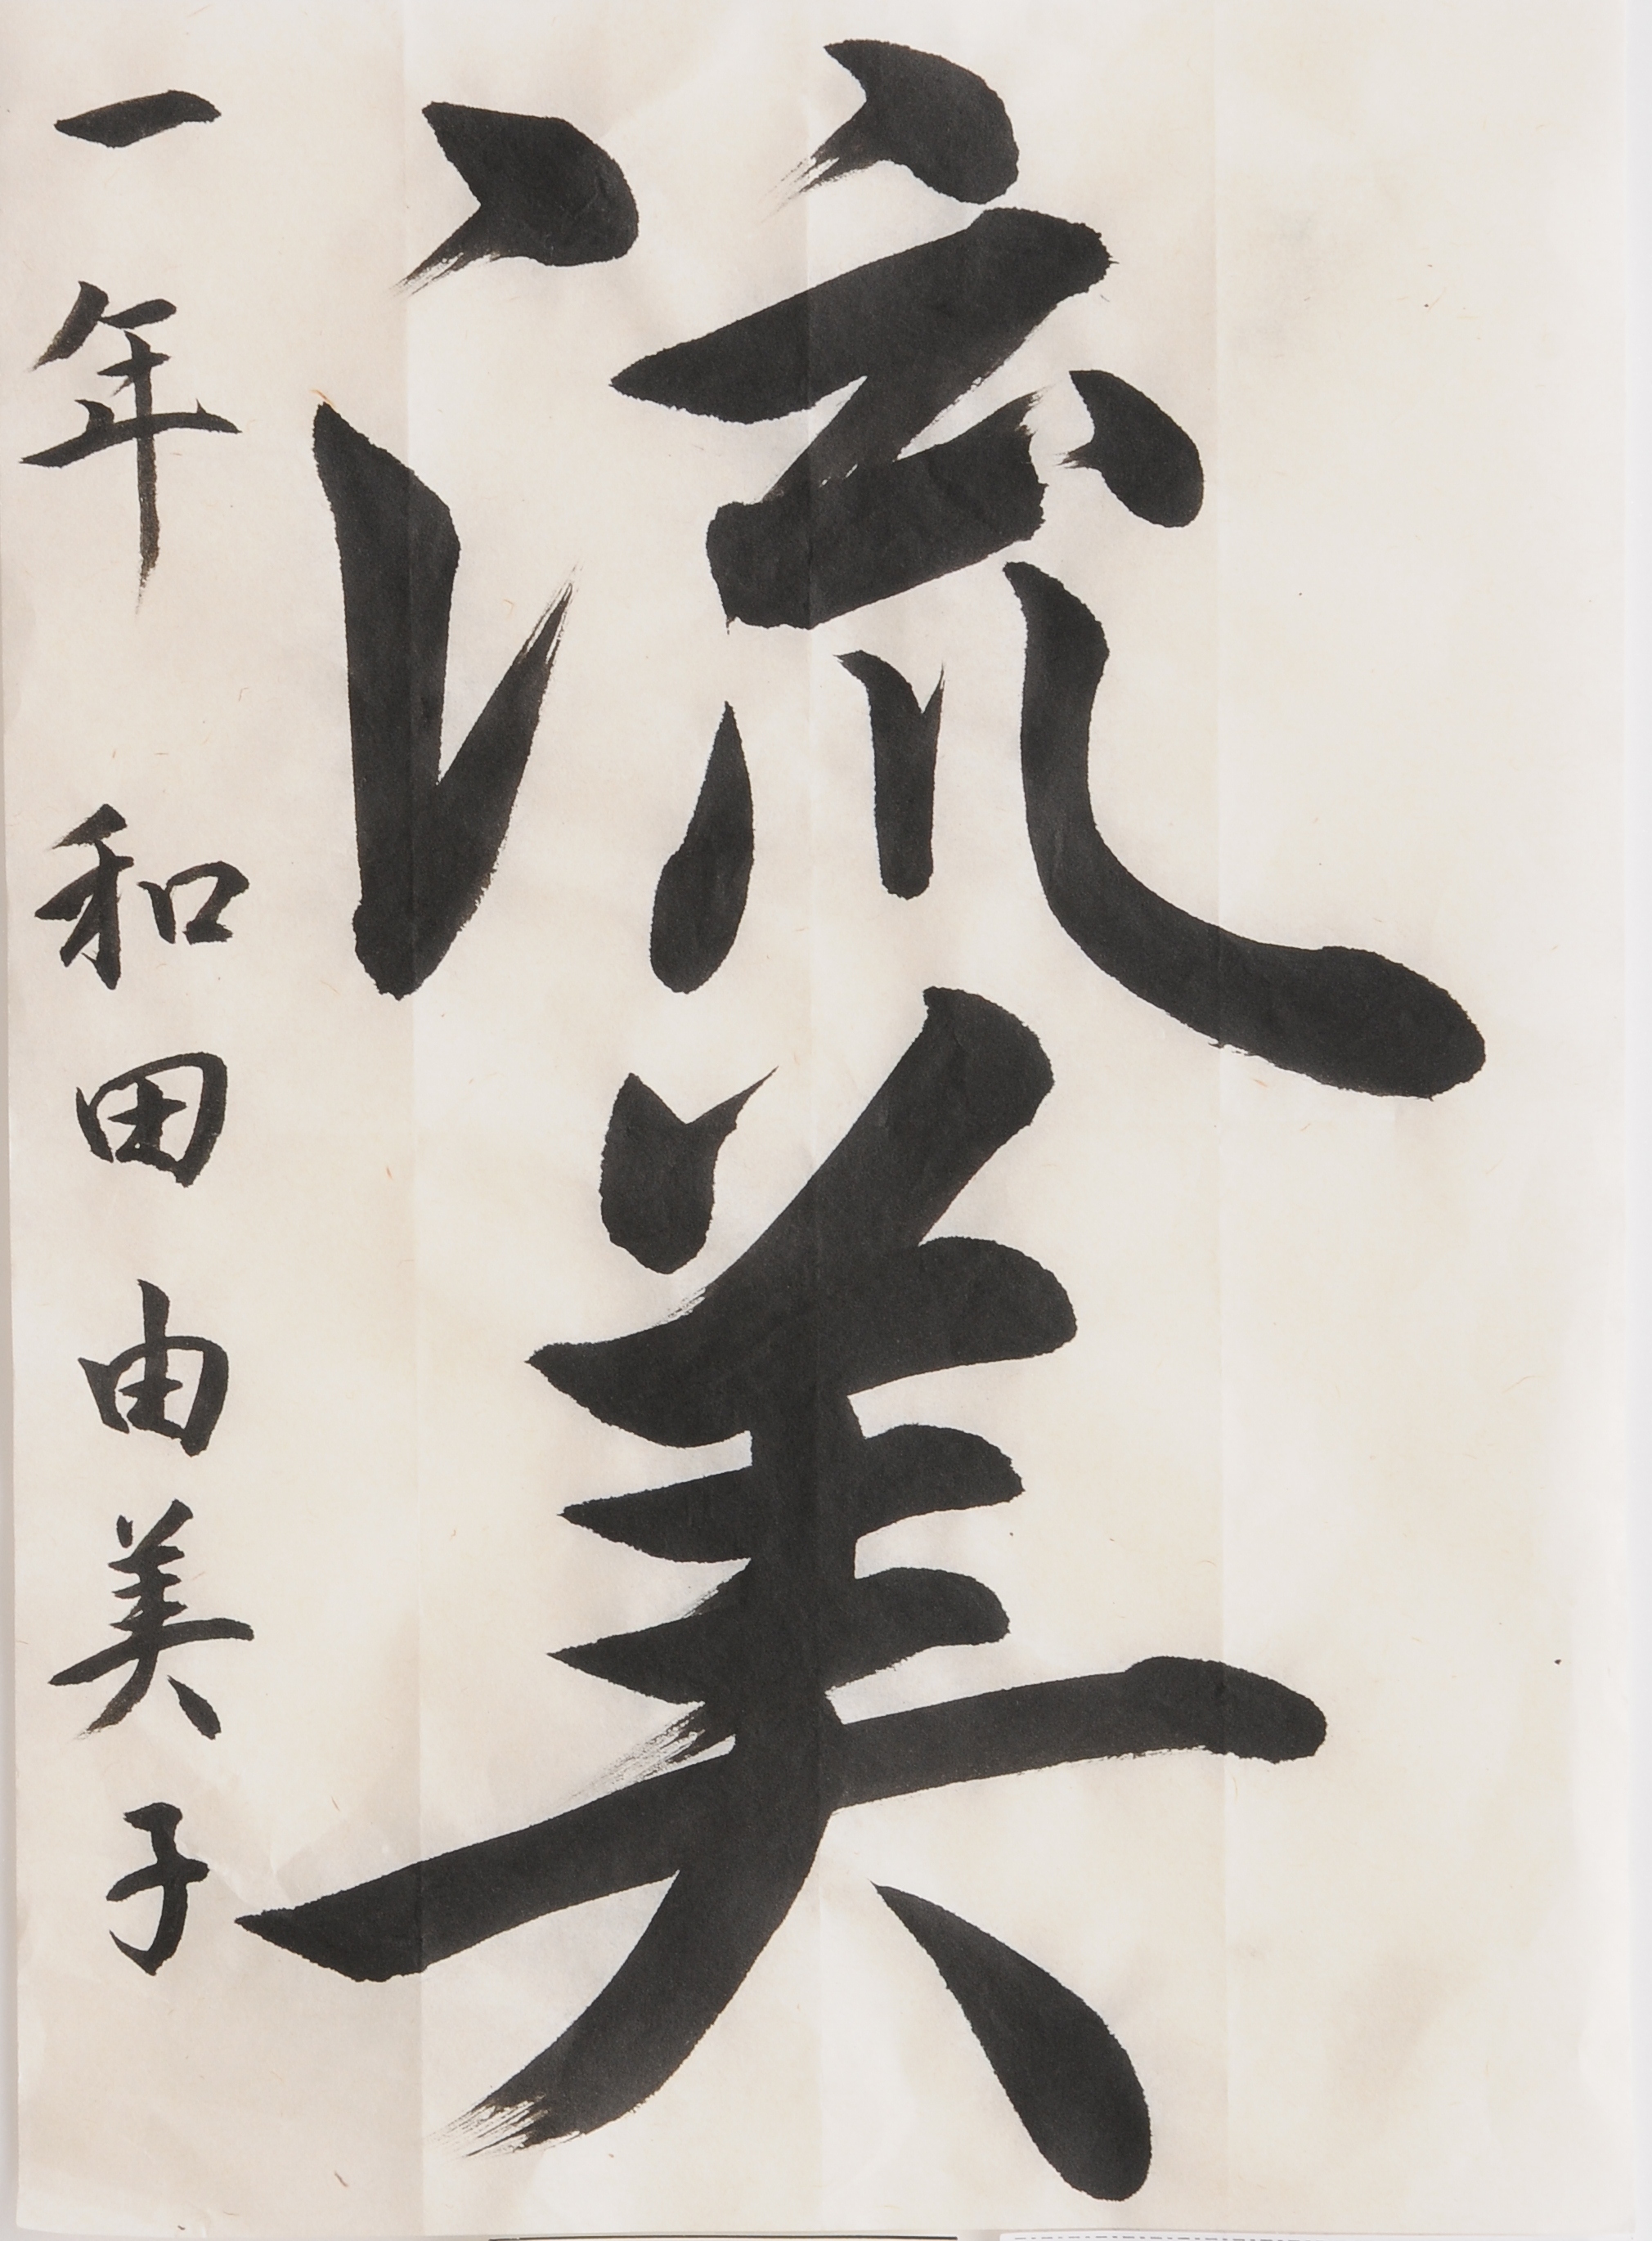 流美
一年 和田由美子